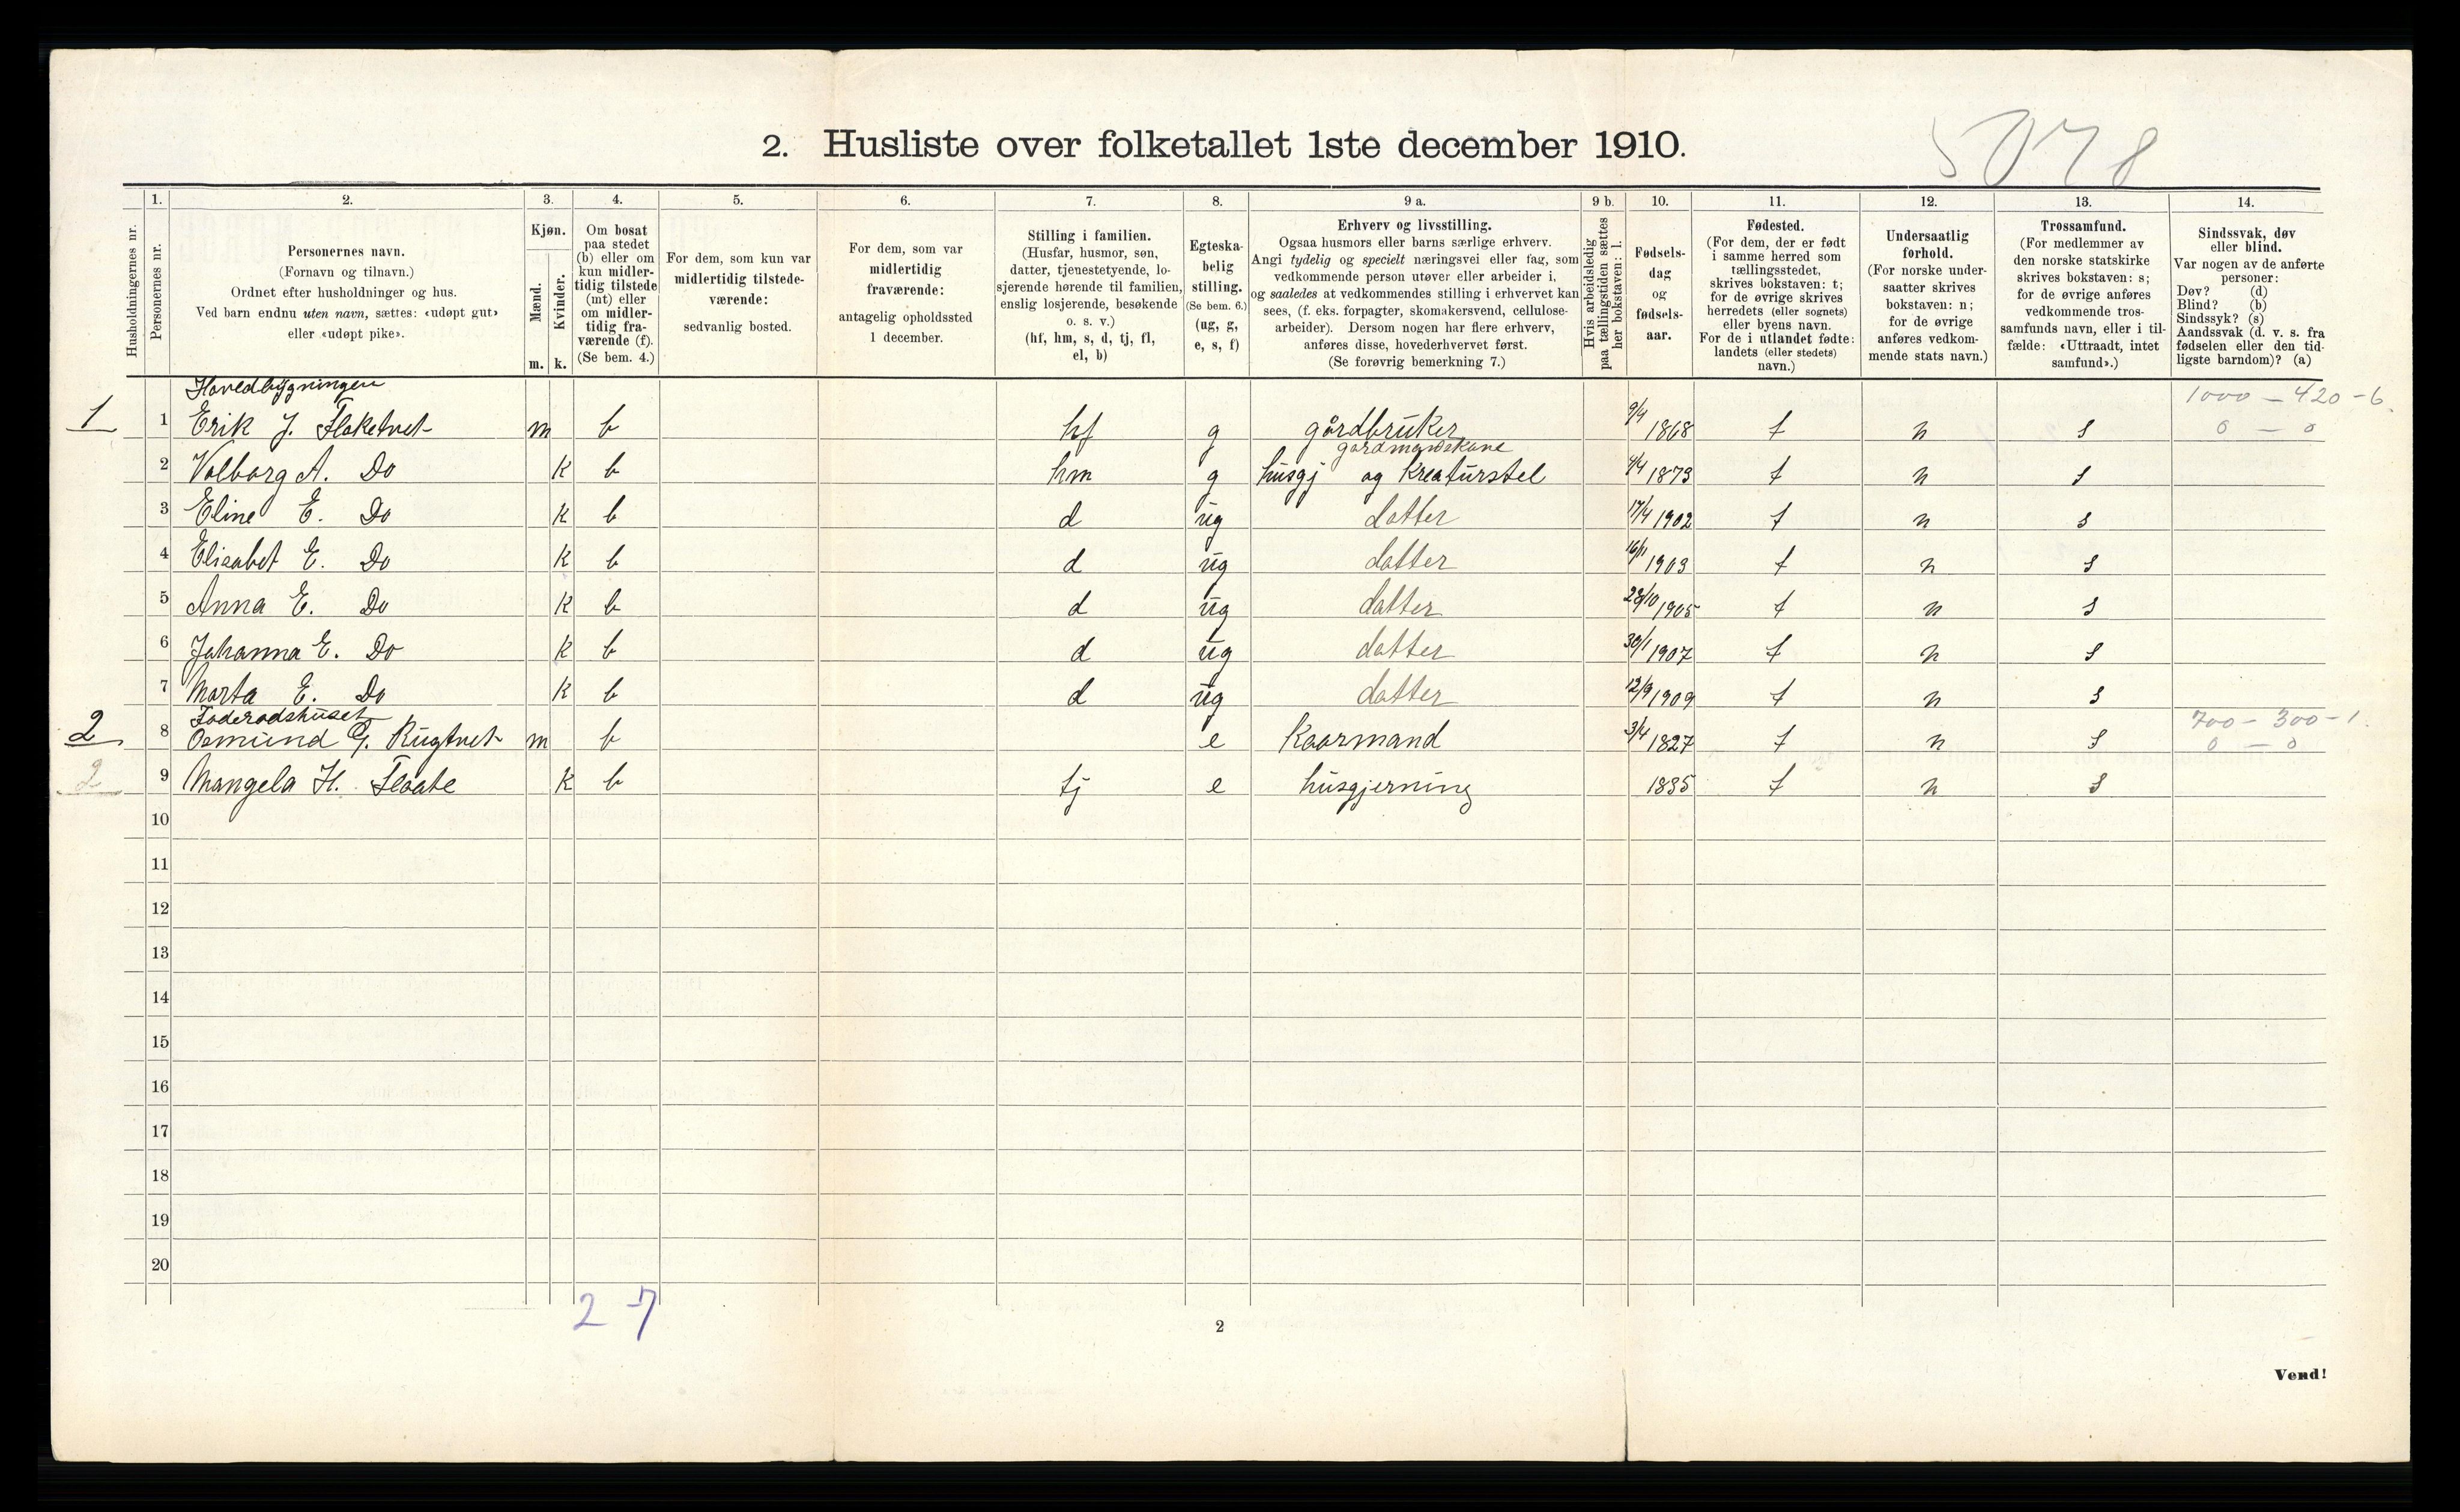 5078
2. Husliste over folketallet 1ste december 1910.
Husholdningernes nr.
1.
Personernes nr.
2.
Personernes navn.
(Fornavn og tilnavn.)
Ordnet efter husholdninger og hus.
Ved barn endnu uten navn, sættes: «udøpt gut»
eller «udøpt pike».
3.
Kjøn.
Mænd.
Kvinder.
m. k.
4.
Om bosat
paa stedet
(b) eller om
kun midler-
tidig tilstede
(mt) eller
om midler-
tidig fra-
værende (f).
(Se bem. 4.)
5.
For dem, som kun var
midlertidig tilstede-
værende:
sedvanlig bosted.
6.
For dem, som var
midlertidig
fraværende:
antagelig opholdssted
1 december.
7.
Stilling i familien.
(Husfar, husmor, søn,
datter, tjenestetyende, lo-
sjerende hørende til familien,
enslig losjerende, besøkende
o. s. v.)
(hf, hm, s, d, tj, fl,
el, b)
8.
Egteska-
belig
stilling.
(Se bem. 6.)
(ug, g,
e, s, f)
9 a.
Erhverv og livsstilling.
Ogsaa husmors eller barns særlige erhverv.
Angi tydelig og specielt næringsvei eller fag, som
vedkommende person utøver eller arbeider i,
og saaledes at vedkommendes stilling i erhvervet kan
sees, (f. eks. forpagter, skomakersvend, cellulose-
arbeider). Dersom nogen har flere erhverv,
anføres disse, hovederhvervet først.
(Se forøvrig bemerkning 7.)
9 b.
Hvis arbeidsledig
paa tællingstiden sættes
her bokstaven: l.
10.
Fødsels-
dag
og
fødsels-
aar.
11.
Fødested.
(For dem, der er født
i samme herred som
tællingsstedet,
skrives bokstaven: t;
for de øvrige skrives
herredets (eller sognets)
eller byens navn.
For de i utlandet fødte:
landets (eller stedets)
navn.)
12.
Undersaatlig
forhold.
(For norske under-
saatter skrives
bokstaven: n;
for de øvrige
anføres vedkom-
mende stats navn.)
13.
Trossamfund.
(For medlemmer av
den norske statskirke
skrives bokstaven: s;
for de øvrige anføres
vedkommende tros-
samfunds navn, eller i til-
fælde: «Uttraadt, intet
samfund».)
14.
Sindssvak, døv
eller blind.
Var nogen av de anførte
personer:
Døv? (d)
Blind? (b)
Sindssyk? (s)
Aandssvak (d. v. s. fra
fødselen eller den tid-
ligste barndom)? (a)
Hovedbygningen 1000 – 420 – 6.
1 1 Erik J. Flaketvet m b hf g gårdbruker 9/4 1868 t n s 0 – 0
gårdmandskone
2 Valborg A. Do k b hm g husgj og Kreaturstel 4/4 1873 t n s
3 Eline E. Do k b d ug datter 17/4 1902 t n s
4 Elisabet E. Do k b d ug datter 16/11 1903 t n s
5 Anna E. Do k b d ug datter 28/10 1905 t n s
6 Johanna E. Do k b d ug datter 30/1 1907 t n s
7 Marta E. Do k b d ug datter 12/9 1909 t n s
Foderadshuset 700 – 300 – 1.
2 8 Osmund G. Rugtvet m b e Kaarmand 3/4 1827 t n s 0 – 0
2 9 Mangela H. Flaate k b tj e husgjerning 1835 t n s
10
11
12
13
14
15
16
17
18
19
20
2 – 7
2
Vend!